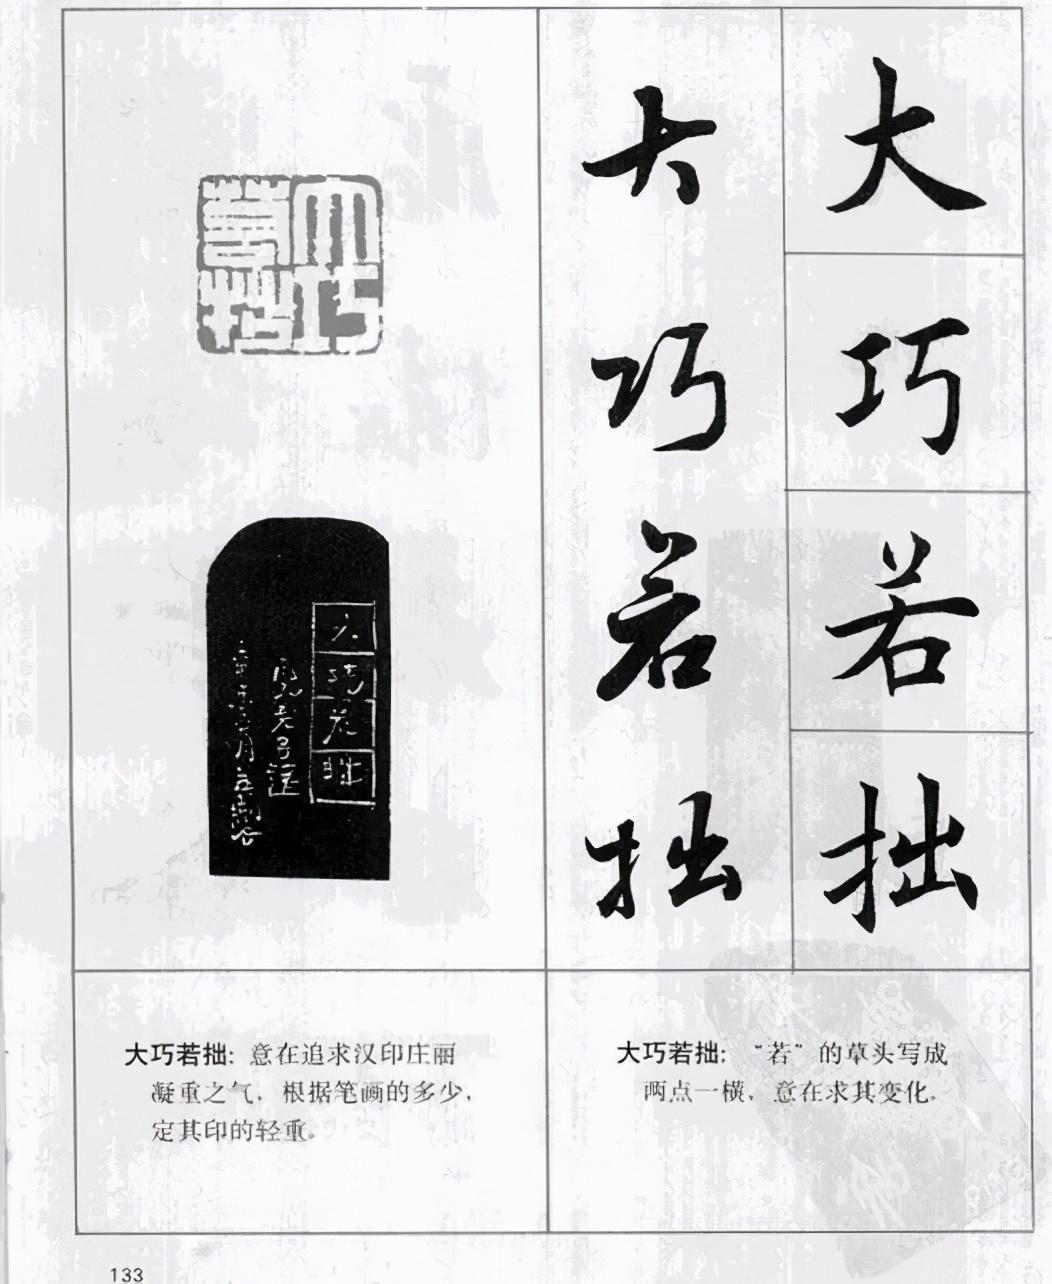 大巧若拙
大巧若拙
大巧若拙
大巧若拙
大巧若拙：“若”的草头写成
两点一横，意在求其变化。
大巧若拙：意在追求汉印庄丽
凝重之气，根据笔画的多少，
定其印的轻重。
133